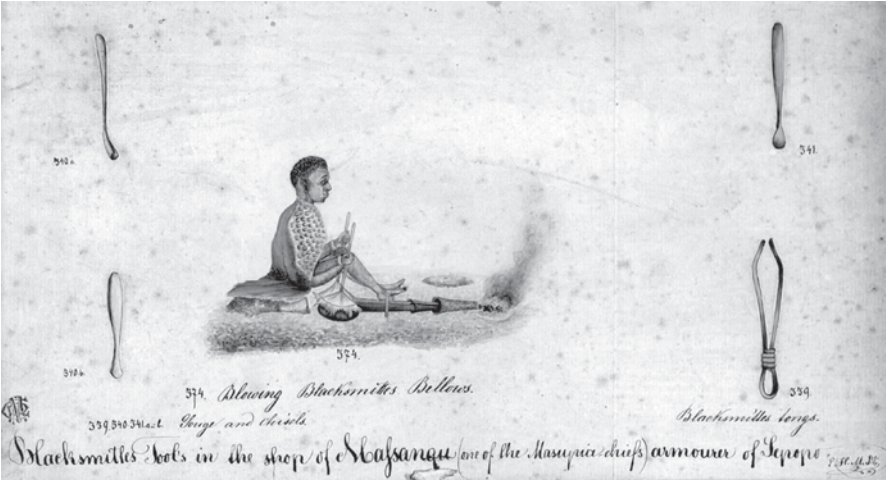 340a.
341.
340b.
374.
339.
374. Blowing Blacksmithes Bellows.
339, 340 341a&b Gouge and chisels.
Blacksmithes tongs.
Blacksmithes Tools in the shop of Massangu (one of the Masupia chiefs) armourer of Sepopo